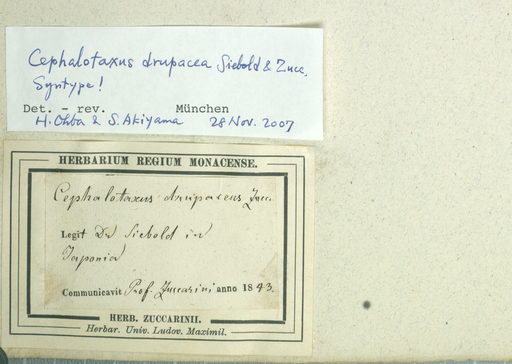 Cephalotaxus drupacea Siebold & Zucc.
Syntype!
Det. - rev. München
H. Ohba & S. Akiyama 28 Nov. 2007
HERBARIUM REGIUM MONACENSE.
Cephalotaxus drupaceus Zucc.
Legit Dr Siebold in
Japonia
Communicavit Prof. Zuccarini anno 1843.
HERB. ZUCCARINII.
Herbar. Univ. Ludov. Maximil.